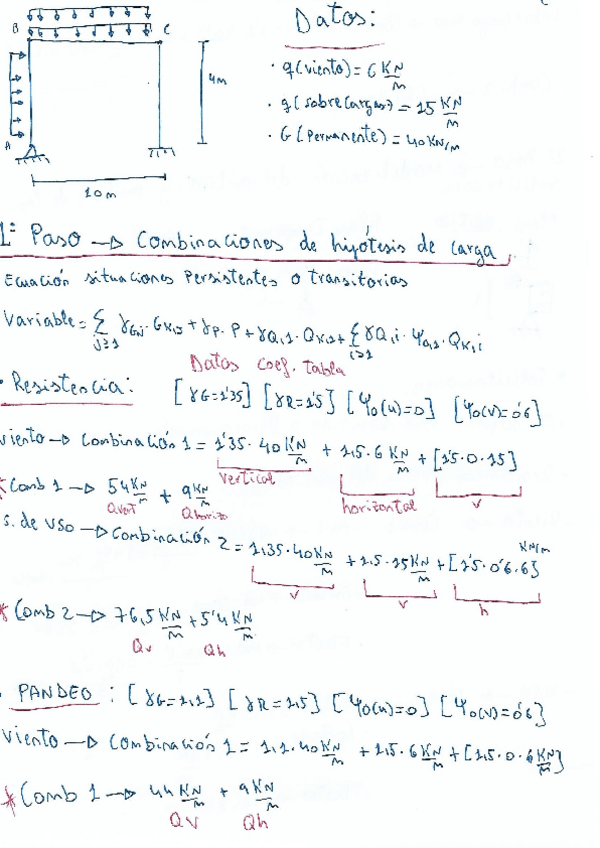 Datos:
B
C
· q(viento) = 6 KN/m
4m
· q(sobrecargas) = 15 KN/m
· G (Permanente) = 40 KN/m
A
10 m
1º Paso → Combinaciones de hipótesis de carga
Ecuación situaciones persistentes o transitorias
Variable = Σ j≥1 γGj · GKj + γP · P + γQ,1 · QK,1 + Σ i>1 γQ,i · Ψ0,1 · QK,i
Datos coef. tabla
· Resistencia: [γG=1'35] [γR=1'5] [Ψ0(u)=0] [Ψ0(v)=0'6]
viento → Combinación 1 = 1'35 · 40 KN/m + 1.5 · 6 KN/m + [1'5 · 0 · 15]
vertical
horizontal
v
* Comb 1 → 54 KN/m + 9 KN/m
Qvert Qhorizo
s. de uso → Combinación 2 = 1.35 · 40 KN/m + 1.5 · 15 KN/m + [1'5 · 0'6 · 6] KN/m
v v h
* Comb 2 → 76,5 KN/m + 5'4 KN/m
Qv Qh
· PANDEO : [γG=1,1] [γR=1,5] [Ψ0(u)=0] [Ψ0(v)=0'6]
Viento → Combinación 1 = 1.1 · 40 KN/m + 1.5 · 6 KN/m + [1.5 · 0 · 6 KN/m]
* Comb 1 → 44 KN/m + 9 KN/m
Qv Qh